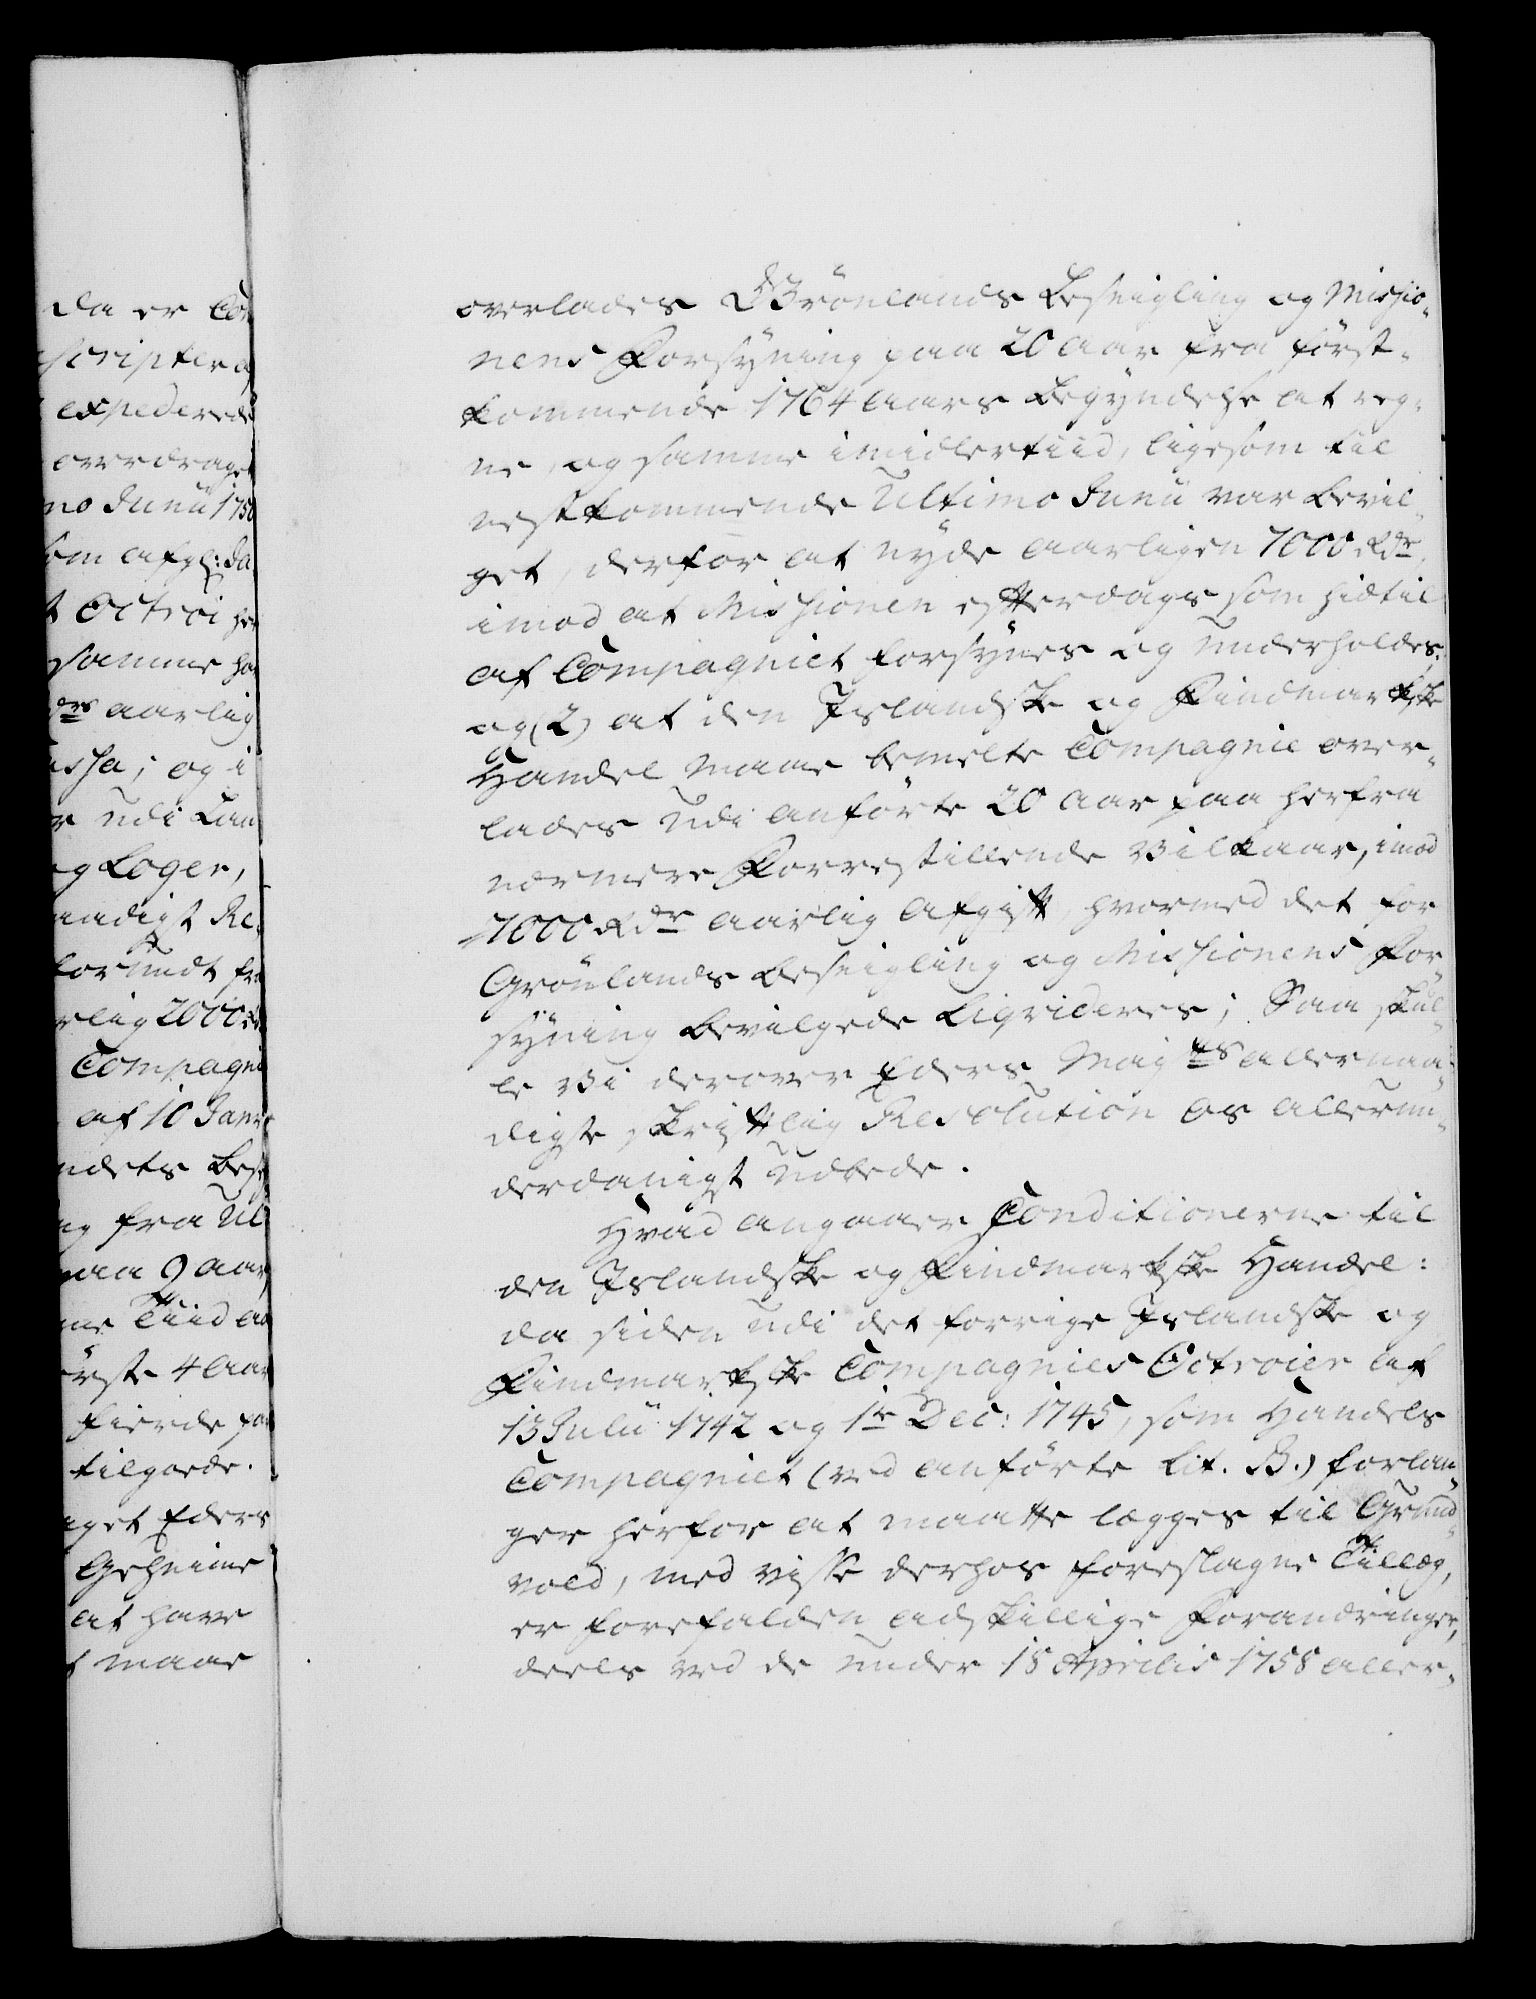 da er Co
scripter o
expederede
overdraget
mo Junii 1750
som afg: Ja
t Octroi he
samme ha
drs aarlig
assa; og i
r udi Lan
og Loger,
aadigst Re-
forundt fra
rlig 2000 Rd
Compagni
af 10 Janr
ndets Bes
ng fra Ul
paa 9 aar,
me Tiid aa
rste 4 Aar
fierde pa
tilgode.
aget Eders
Geheime
at have
t maae
overlades Grönlands Beseigling og Missio-
nens Forsÿning paa 20 aar fra först-
kommende 1764 Aars Begÿndelse at reg-
ne, og samme imidlertiid, ligesom til
nestkommende Ultimo Junii var bevil-
get, derfor at nÿde aarligen 7000 Rdr,
imod at Missionen efterdags som hidtil
af Compagniet forsÿnes og underholdes;
og (2) at den Islandske og Findmarkske
Handel maae bemelte Compagnie over-
lades udi anförte 20 Aar paa herfra
nærmere Forrestillende Vilkaar, imod
7000 Rdr aarlig Afgift, hvormed det for
Grönlands Beseigling og Missionens For-
sÿning bevilgede Liqvideres; Saa skul-
le Vi derover Eders Majts allernaa-
digste skriftlig Resolution os allerun-
derdanigst udbede.
Hvad angaaer Conditionerne til
den Islandske og Findmarkske Handel:
da siden udi det forrige Islandske og
Findmarkske Compagnies Octroier af
13 Julii 1742 og 1te Dec: 1745, som Handels
Compagniet (ved anförte Lit. B.) forlan-
ger herfor at maatte lægges til Grund-
vold, med visse derhos foreslagne Tillæg,
er forefalden adskillige Forandringer,
deels ved de under 15 Aprilis 1758 aller-